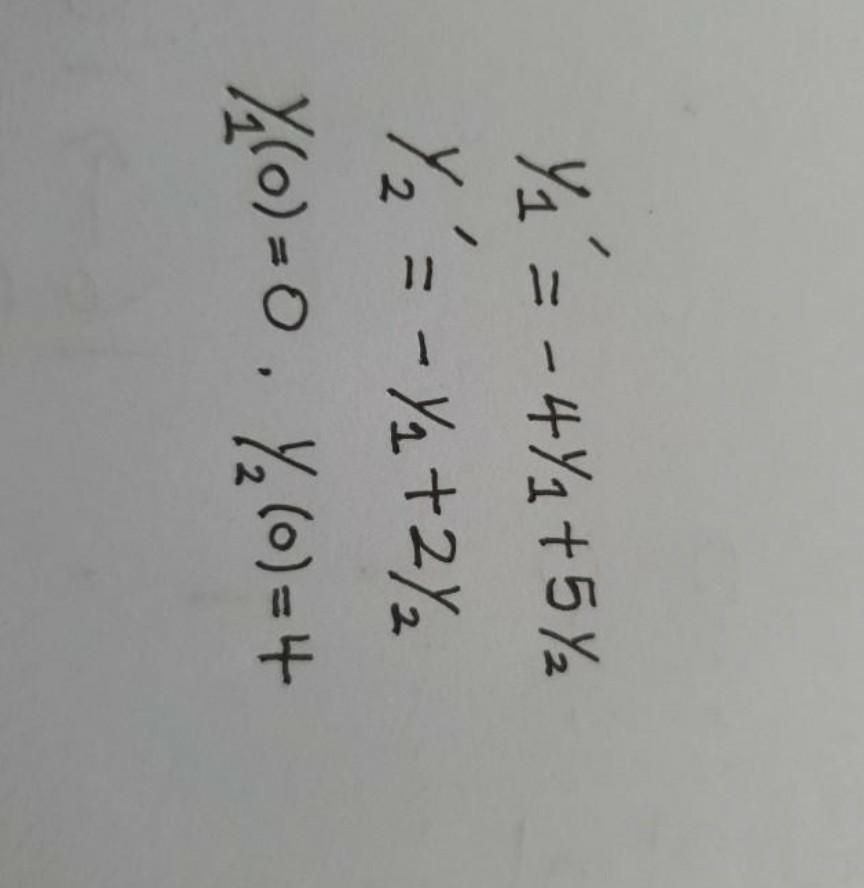 y₁' = -4y₁ + 5y₂
y₂' = -y₁ + 2y₂
y₁(0) = 0 . y₂(0) = 4